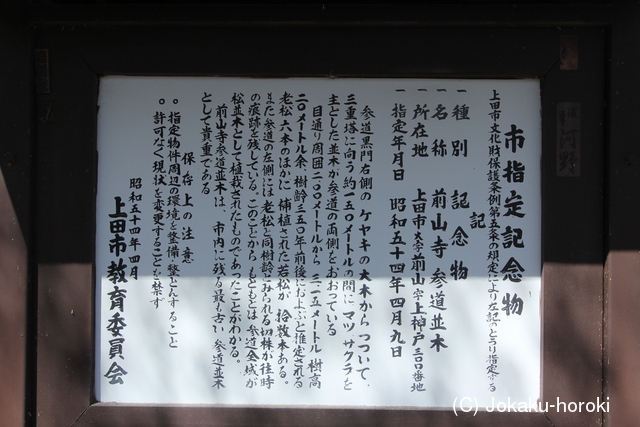 市指定記念物
上田市文化財保護条例第五条の規定により左記のとおり指定する
記
一 種別 記念物
一 名称 前山寺参道並木
一 所在地 上田市大字前山字上神戸三〇番地
一 指定年月日 昭和五十四年四月九日
参道黒門右側のケヤキの大木からつづいて、
三重塔に向う約一五〇メートルの間にマツ サクラを
主とした並木が参道の両側をおおっている
目通り周囲二〇〇メートルから三・一五メートル 樹高
二〇メートル余、樹齢三五〇年前後におよぶと推定される
老松六本のほかに 補植された若松が 拾数本ある。
また参道の左側には老松と同樹齢とみられる切株が往時
の痕跡を残している。このことからもともとは参道全域が
松並木として植栽されたものであったことがわかる。
前山寺参道並木は、市内に残る最も古い参道並木
として貴重である
保存上の注意
指定物件周辺の環境を整備、整とんすること
許可なく現状を変更することを禁ず
昭和五十四年四月
上田市教育委員会
(C) Jokaku-horoki